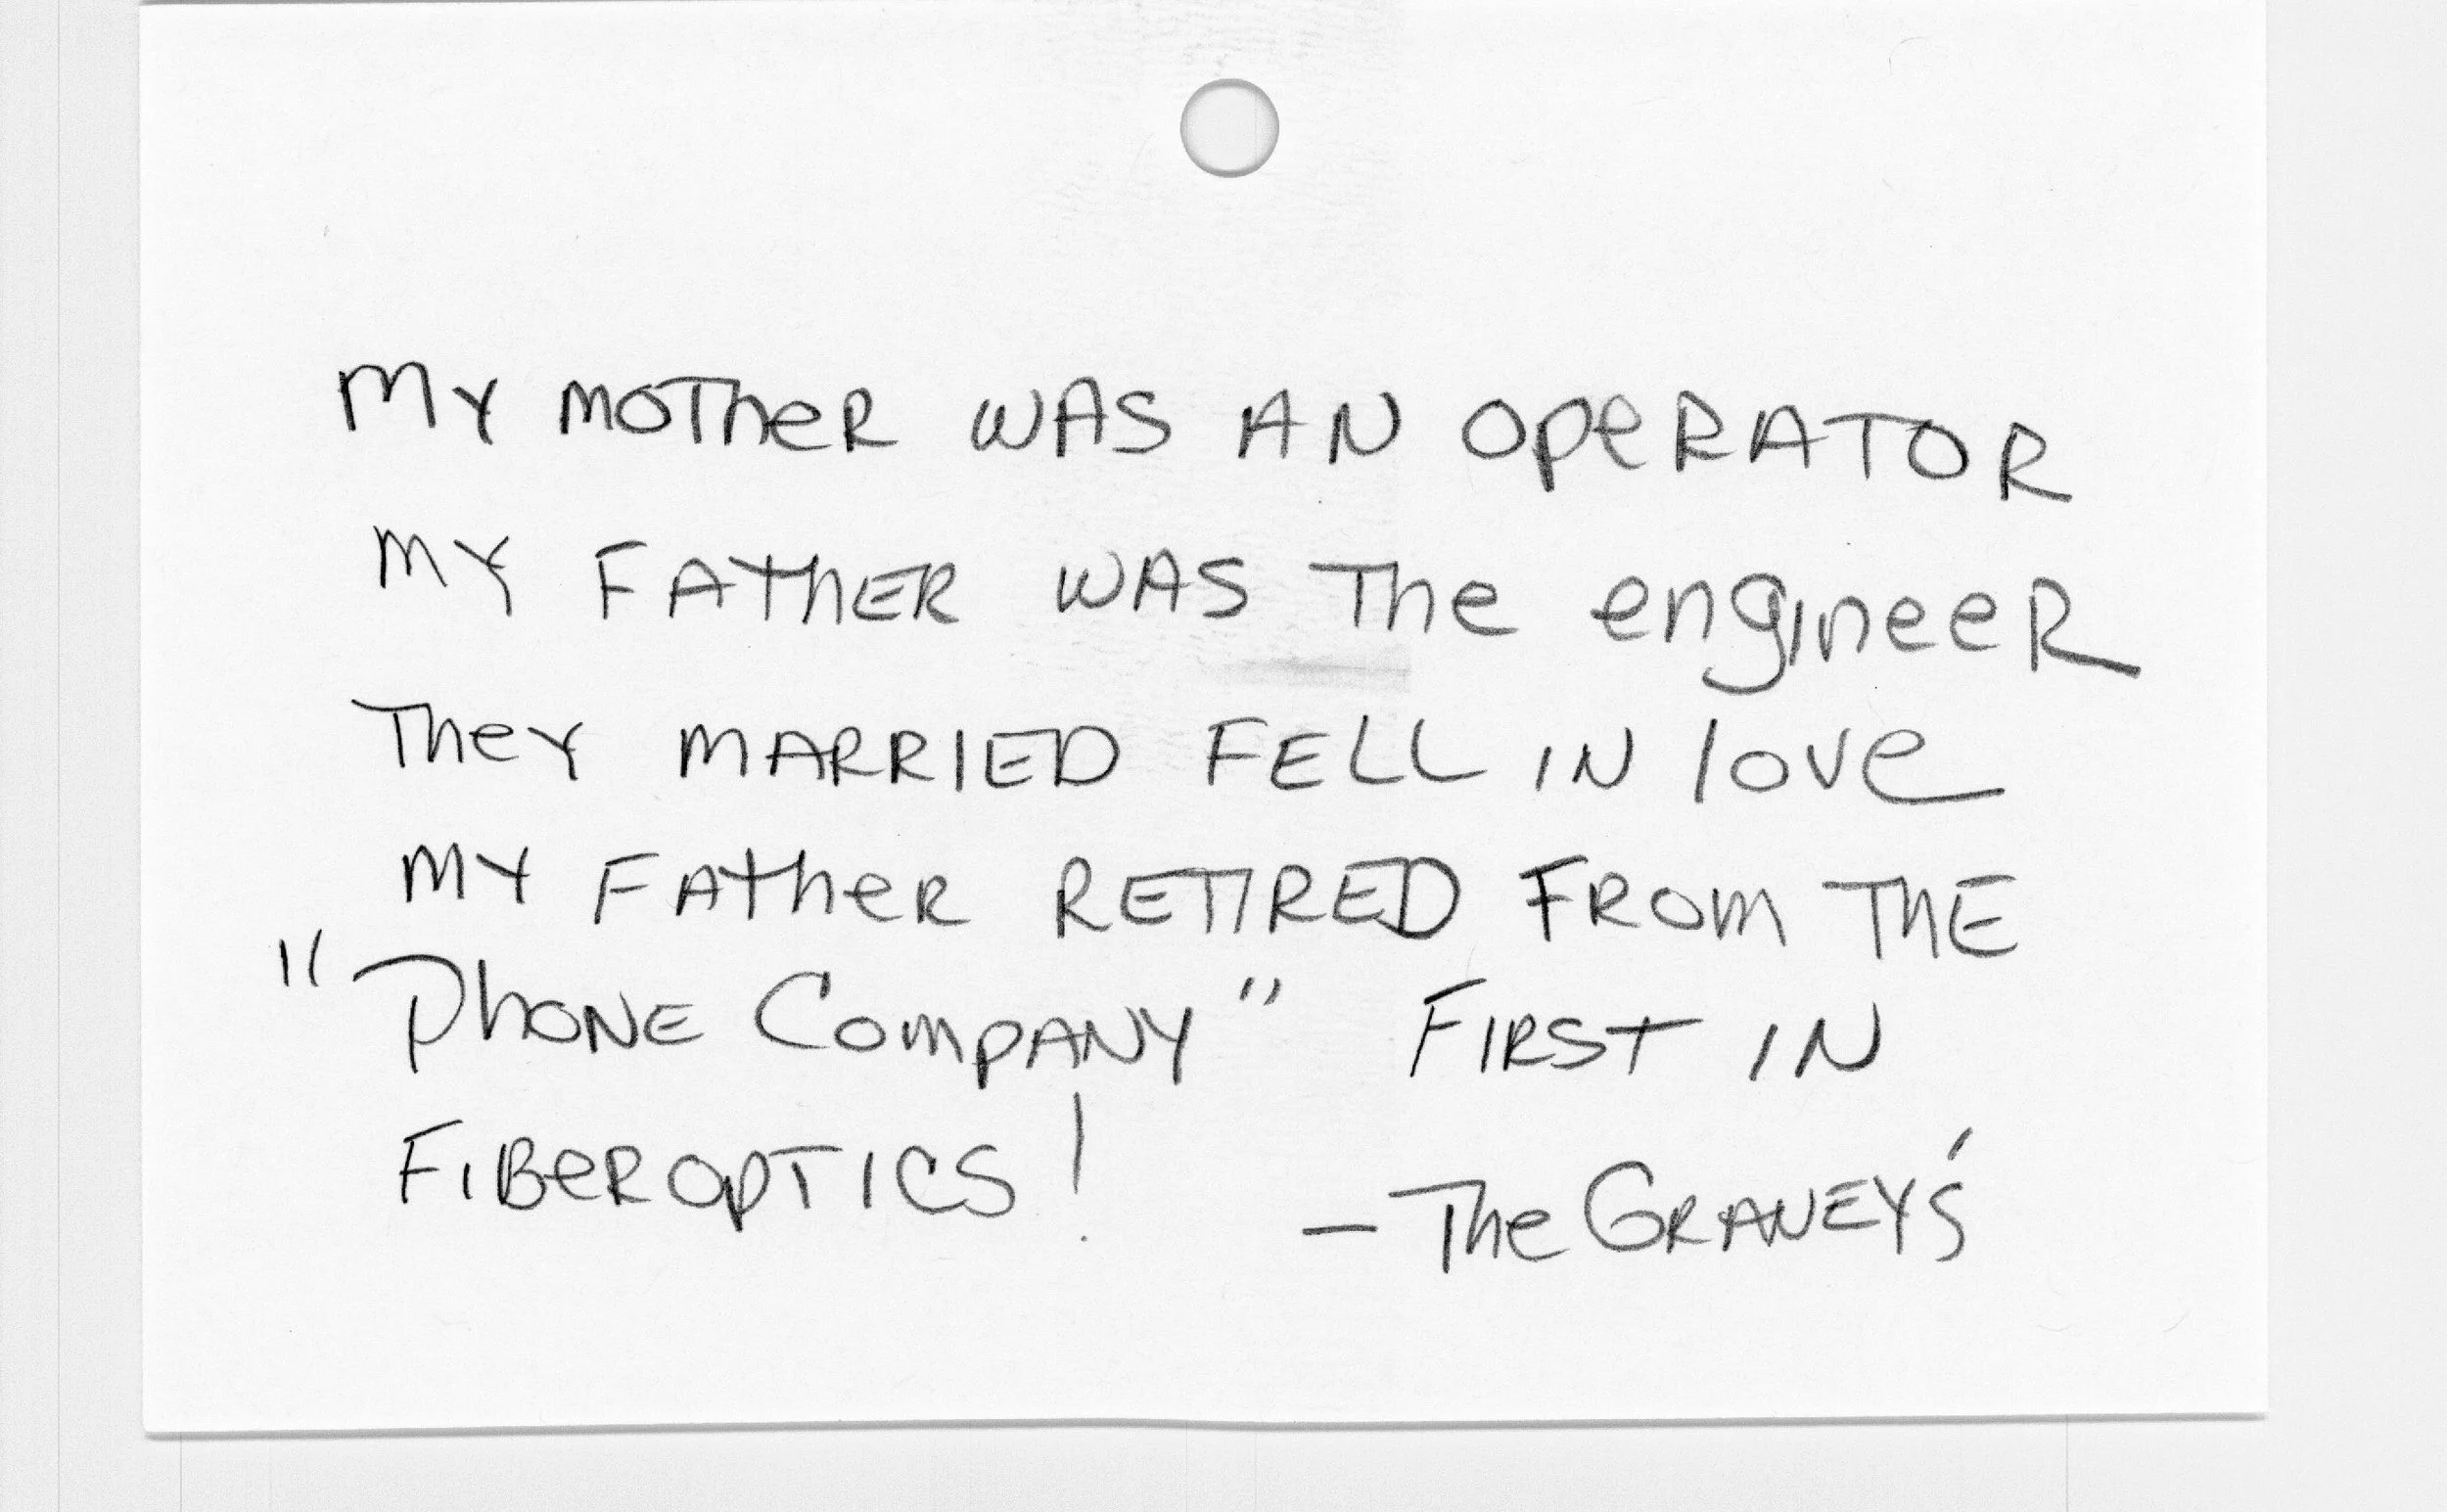 My MOTheR WAS AN OpeRATOR
MY FATHER WAS The engineeR
They MARRIED FELL IN love
MY FATheR RETIRED FROM THE
"PhONE COMPANY" FIRST IN
FIBeROPTICS!
- The GRANEY'S